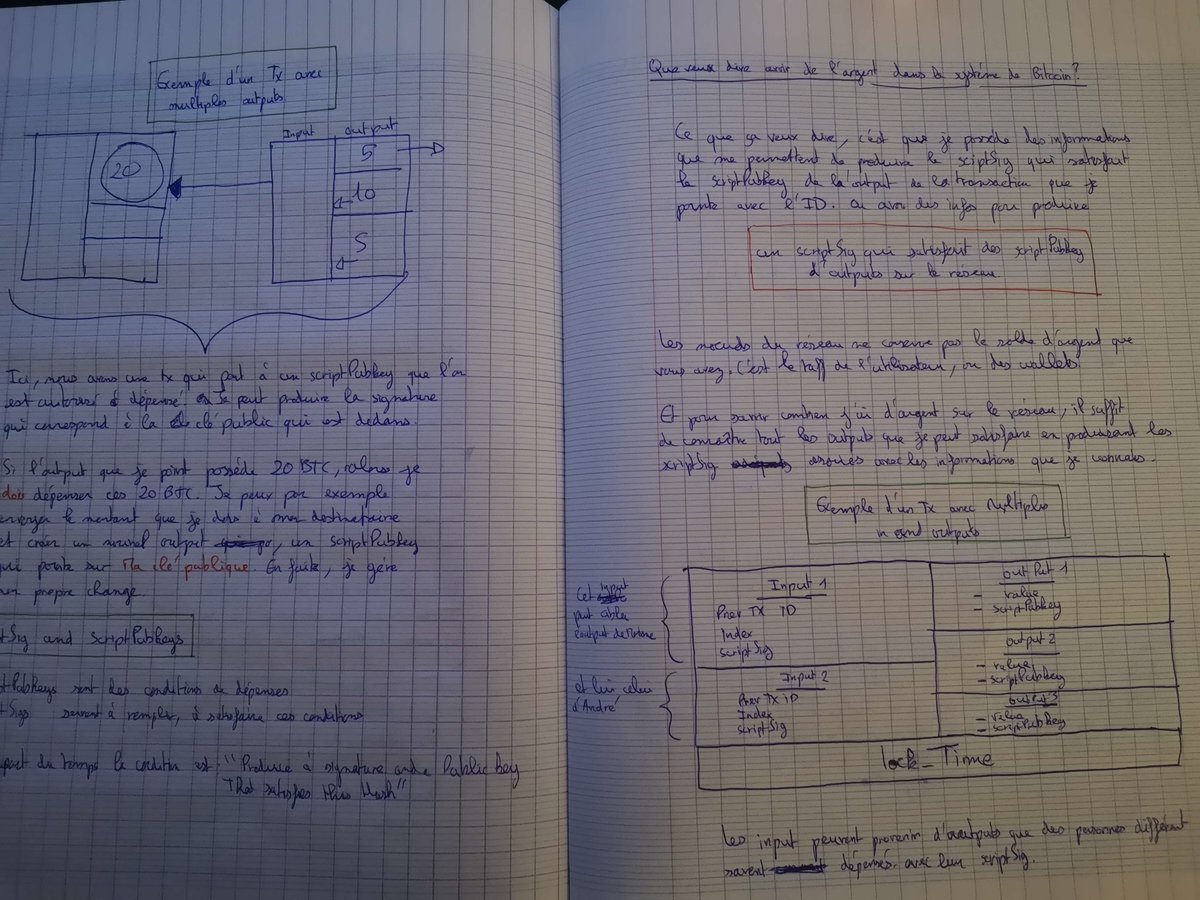 Exemple d'un Tx avec
multiples outputs
Input
output
20
5
10
5
Ici, nous avons une tx qui point à un scriptPubkey que l'on
est autorisé à dépensé. Je peut produire la signature
qui correspond à la clé public qui est dedans.
Si l'output que je point possède 20 BTC, alors je
dois dépenser ces 20 BTC. Je peux par exemple
envoyer le montant que je dois à mon destinataire
et créer un nouvel output, un scriptPubkey
qui pointe sur Ma clé publique. En faite, je gère
mon propre change.
tSig and scriptPabkeys
tPabkeys sont des conditions de dépenses
tSigs servent à remplir, à satisfaire ces conditions
part du temps la condition est "Produce a signature and a Public key
That satisfies this Hash"
Que veux dire avoir de l'argent dans le système de Bitcoin?
Ce que ça veux dire, c'est que je possède des informations
que me permettent de produire le scriptSig qui satisfait
le scriptPabkey de la output de la transaction que je
pointe avec l'ID. Ou avoir des infos pour produire
un scriptSig qui satisfont des scriptPabkey
d'outputs sur le réseau.
Les noeuds du réseau ne conserve pas le solde d'argent que
vous avez. C'est le taff de l'utilisateur, ou des wallets.
Et pour savoir combien j'ai d'argent sur le réseau, il suffit
de connaître tout les outputs que je peut satisfaire en produisant les
scriptSig avec les informations que je connais.
Exemple d'un Tx avec Multiples
in and outputs
Cet input
peut cibler
l'output de
Input 1
Prev TX ID
Index
scriptSig
et lui celui
d'André
Input 2
Prev TX ID
Index
scriptSig
output 1
- value
- scriptPabkey
output 2
- value
- scriptPabkey
output 3
- value
- scriptPabkey
lock_Time
Les input peuvent provenir d'outputs que des personnes différent
savent dépensés avec leur scriptSig.